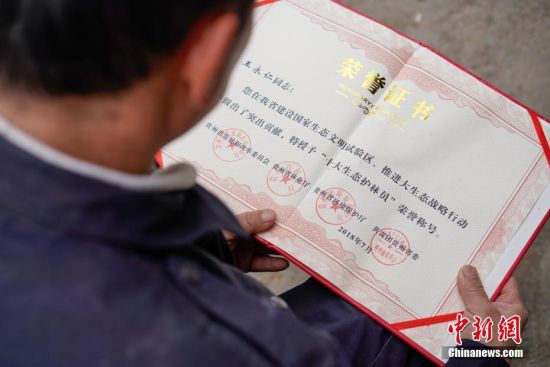 荣誉证书
王永仁同志：
您在我省建设国家生态文明试验区、推进大生态战略行动
做出了突出贡献，特授予“十大生态护林员”荣誉称号。
贵州省发展和改革委员会 贵州省林业厅 贵州省环境保护厅 共青团贵州省委
2018年7月
中新网
Chinanews.com